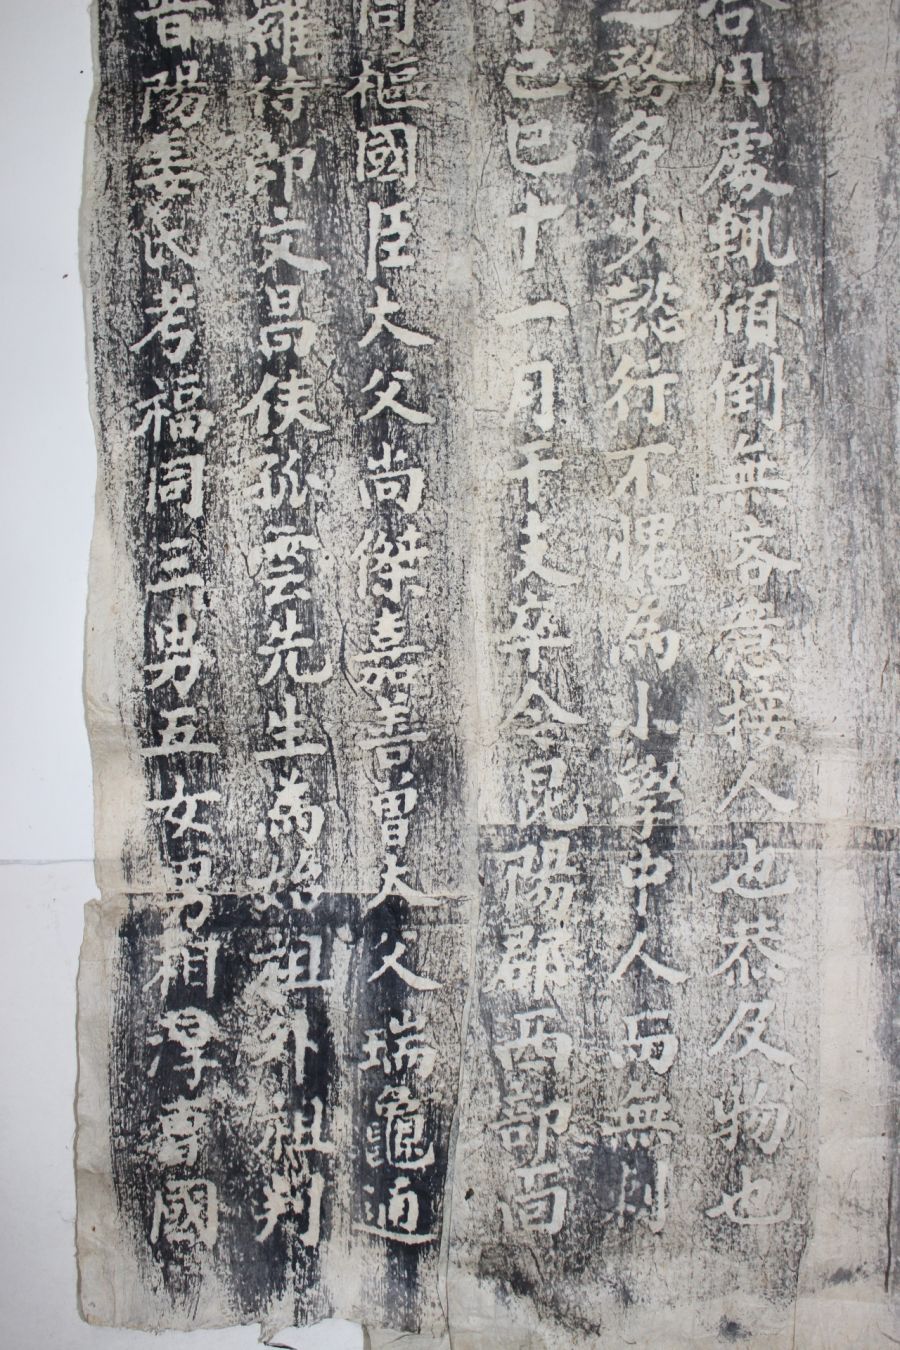 用處輒傾倒無吝意接人也恭及物也
一務多少懿行不愧為小學中人而無
己巳十一月干支卒今昆陽郡西部面
同樞國臣大父尚傑嘉善曾大父瑞龜通
羅侍郎文昌侯孤雲先生為始祖外祖判
晋陽姜氏考福同三男五女男相淳齊國